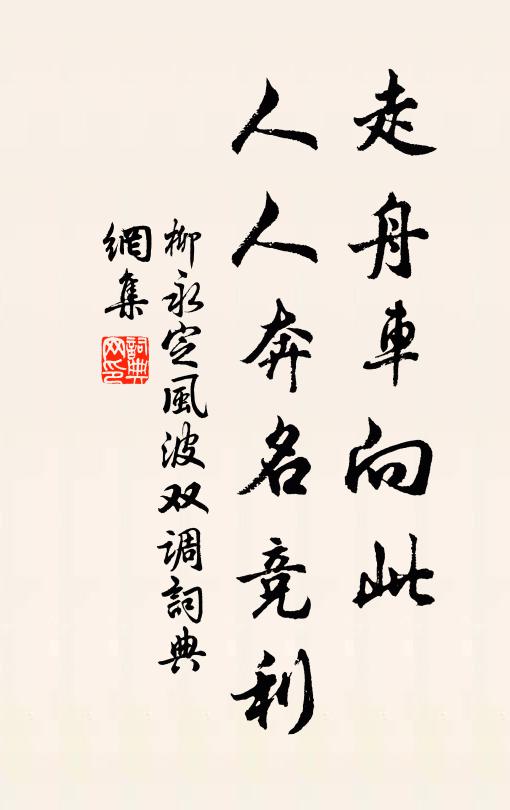 走舟車向此
人人奔名竞利
柳永定風波双调詞典
網集
詞典網印